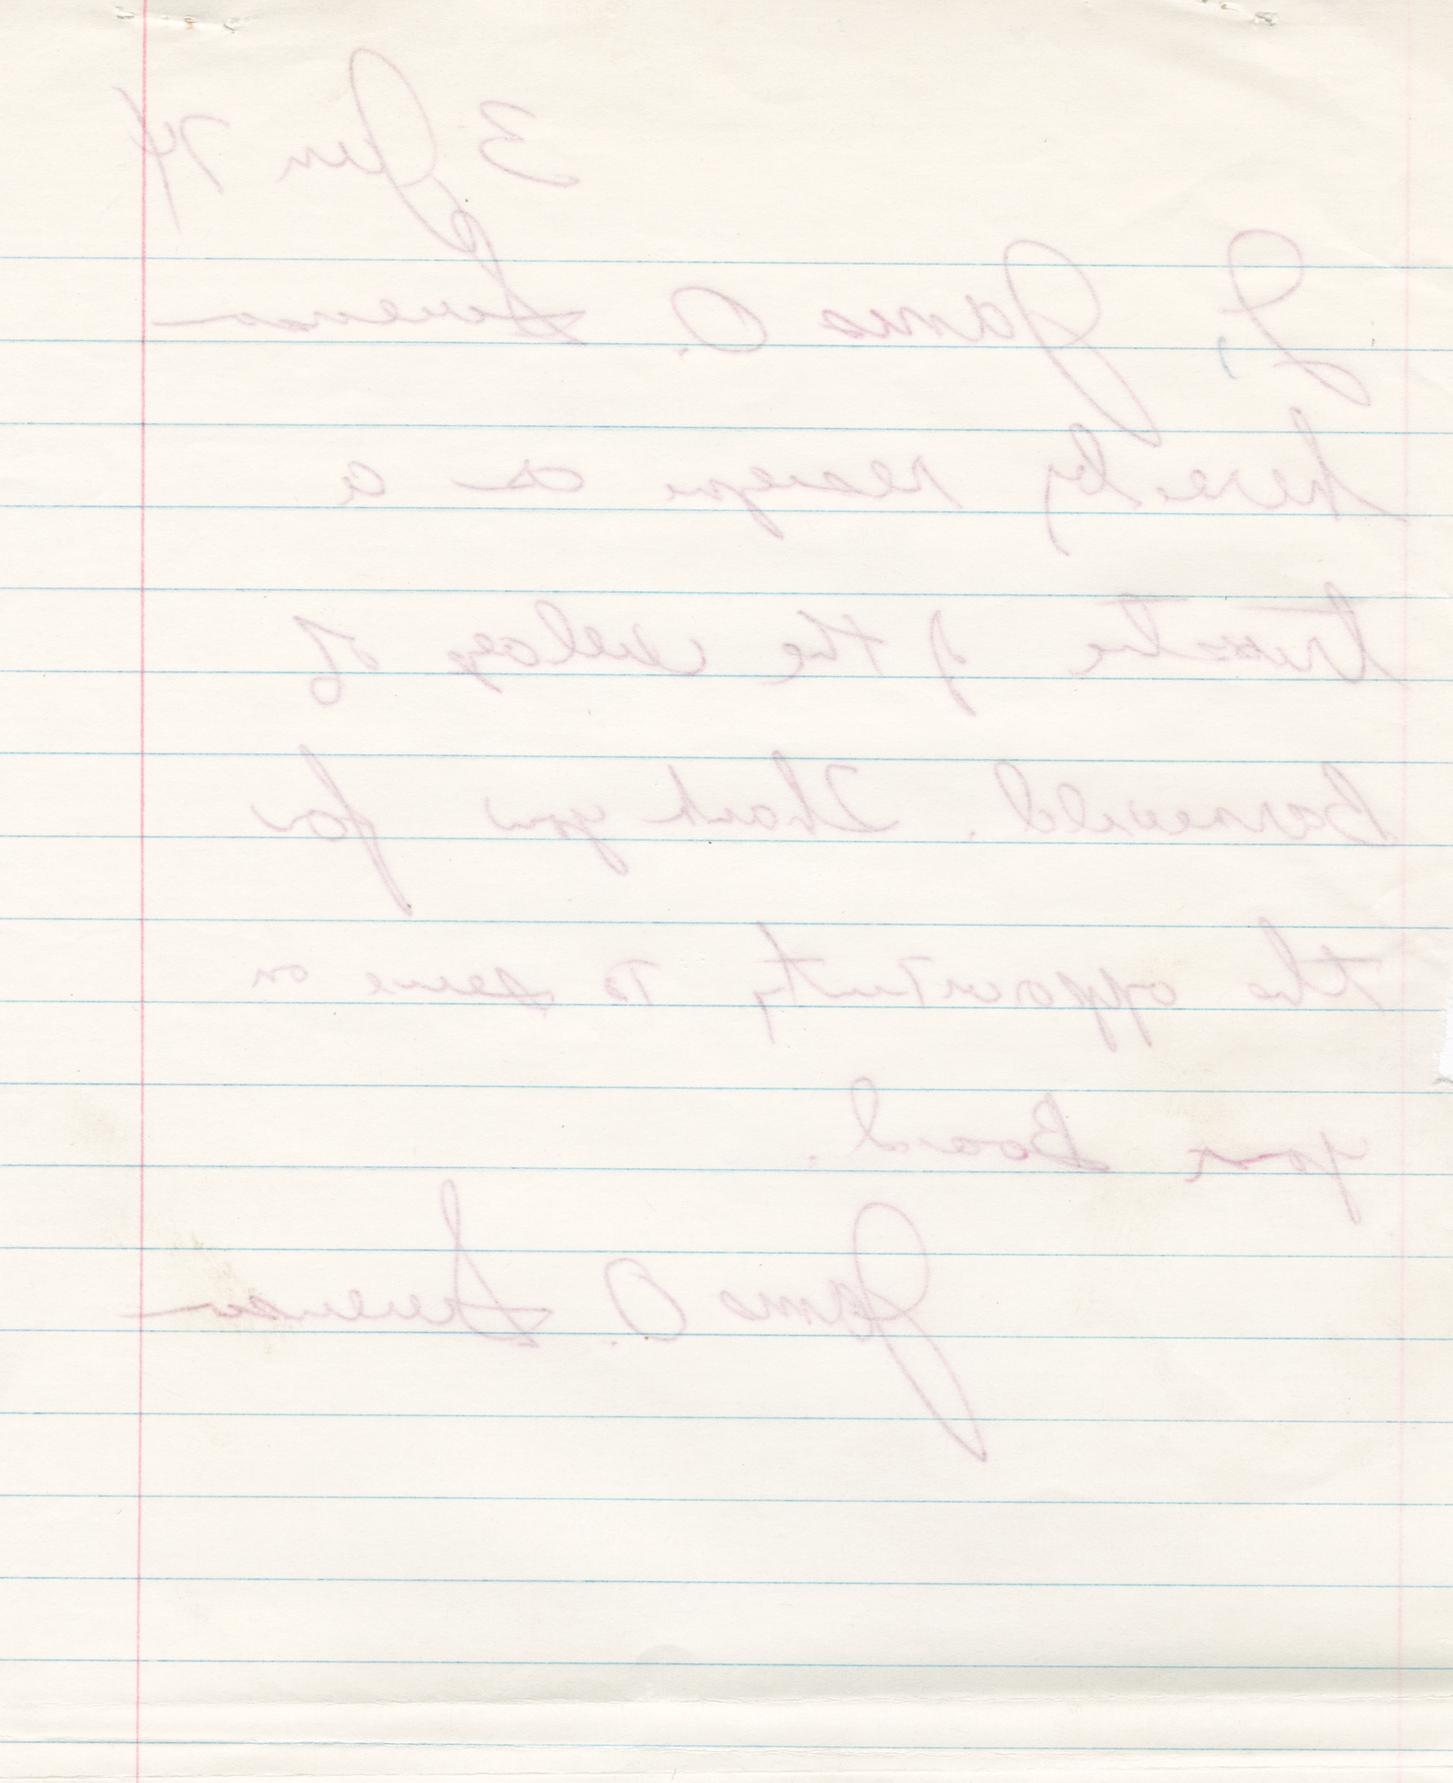 3 Jun 74
I, James O. Swenson
hereby resign as a
trustee of the village of
Barneveld. Thank you for
the opportunity to serve on
your Board.
James O. Swenson